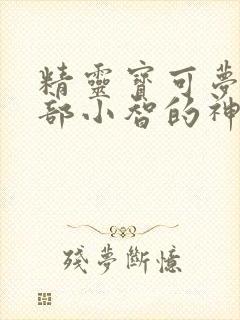 精靈寶可夢
部小智的神
殘夢斷憶